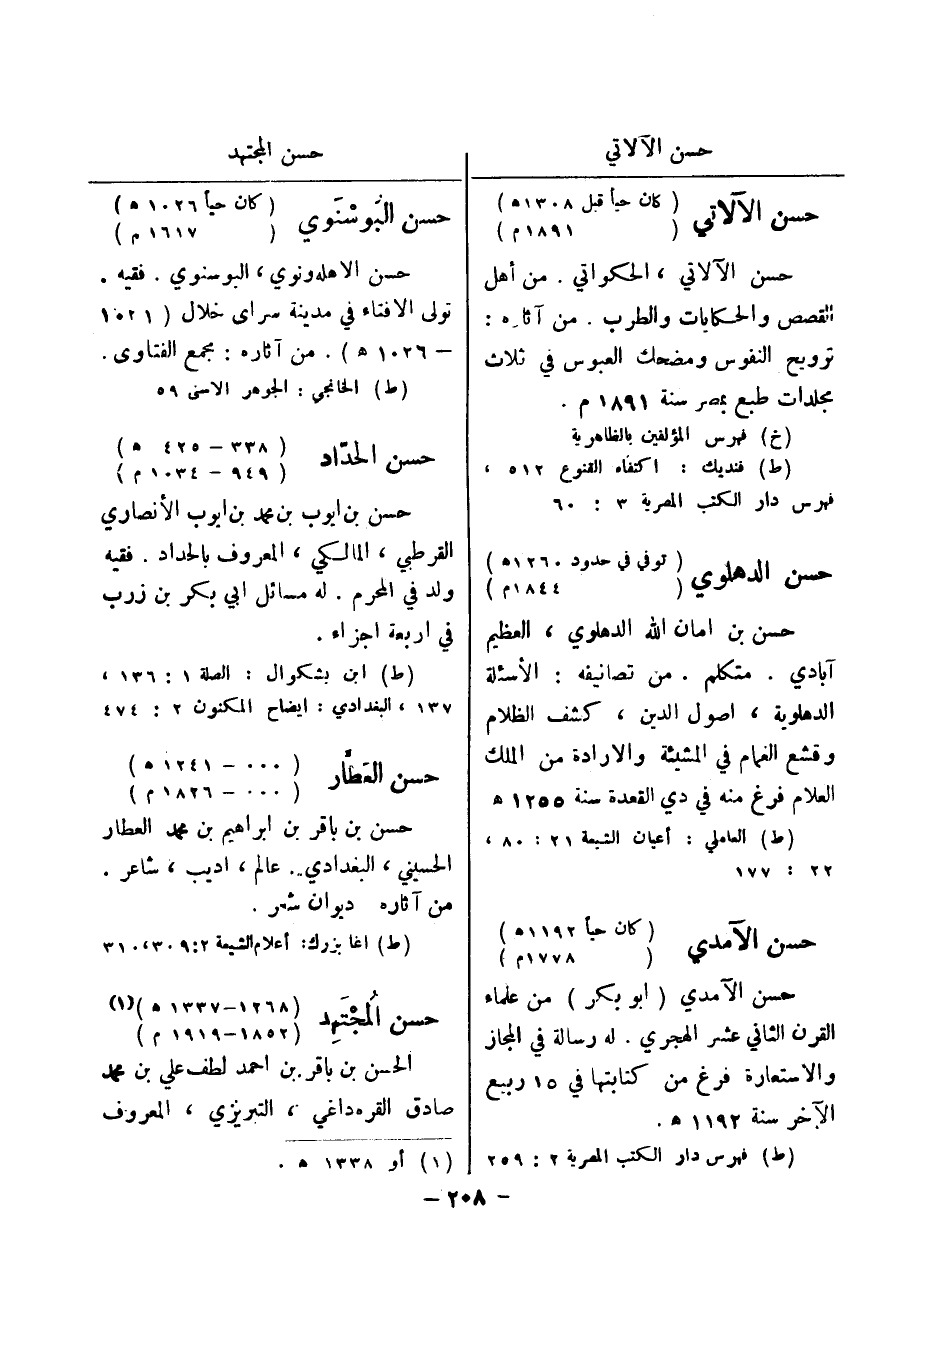 حسن الآلاتي
حسن الآلاتي ( كان حياً قبل ١٣٠٨ ه )
( ١٨٩١ م )
حسن الآلاتي ، الحكواتي . من أهل
القصص والحكايات والطرب . من آثاره :
ترويح النفوس ومضحك العبوس في ثلاث
مجلدات طبع بمصر سنة ١٨٩١ م .
(خ) فهرس المؤلفين بالظاهرية
(ط) فنديك : اكتفاء القنوع ٥١٢ ،
فهرس دار الكتب المصرية ٣ : ٦٠
حسن الدهلوي ( توفي في حدود ١٢٦٠ ه )
( ١٨٤٤ م )
حسن بن امان الله الدهلوي ، العظيم
آبادي . متكلم . من تصانيفه : الأسئلة
الدهلوية ، اصول الدين ، كشف الظلام
وقشع الغمام في المشيئة والارادة من الملك
العلام فرغ منه في ذي القعدة سنة ١٢٥٥ ه
(ط) العاملي : أعيان الشيعة ٢١ : ٨٠ ،
٢٢ : ١٧٧
حسن الآمدي ( كان حياً ١١٩٢ ه )
( ١٧٧٨ م )
حسن الآمدي ( ابو بكر ) من علماء
القرن الثاني عشر الهجري . له رسالة في المجاز
والاستعارة فرغ من كتابتها في ١٥ ربيع
الآخر سنة ١١٩٢ ه .
(ط) فهرس دار الكتب المصرية ٢ : ٢٥٩
حسن المجتهد
حسن البُوسْنَوي ( كان حياً ١٠٢٦ ه )
( ١٦١٧ م )
حسن الاهلهونوي ، البوسنوي . فقيه .
تولى الافتاء في مدينة سراى خلال ( ١٠٢١
– ١٠٢٦ ه ) . من آثاره : مجمع الفتاوى .
(ط) الخانجي : الجوهر الاسنى ٥٩
حسن الحدّاد ( ٣٣٨ – ٤٢٥ ه )
( ٩٤٩ – ١٠٣٤ م )
حسن بن ايوب بن محمد بن ايوب الأنصاري
القرطبي ، المالكي ، المعروف بالحداد . فقيه
ولد في المحرم . له مسائل ابي بكر بن زرب
في اربعة اجزاء .
(ط) ابن بشكوال : الصلة ١ : ١٣٦ ،
١٣٧ ، البغدادي : ايضاح المكنون ٢ : ٤٧٤
حسن العَطَّار ( ٠٠٠ – ١٢٤١ ه )
( ٠٠٠ – ١٨٢٦ م )
حسن بن باقر بن ابراهيم بن محمد العطار
الحسيني ، البغدادي .. عالم ، اديب ، شاعر .
من آثاره ديوان شعر .
(ط) اغا بزرك : أعلام الشيعة ٢ : ٣٠٩ ، ٣١٠
حسن المُجْتَهِد ( ١٢٦٨ – ١٣٣٧ ه ) (١)
( ١٨٥٢ – ١٩١٩ م )
الحسن بن باقر بن احمد لطف علي بن محمد
صادق القره داغي ، التبريزي ، المعروف
(١) أو ١٣٣٨ ه .
– ٢٠٨ –